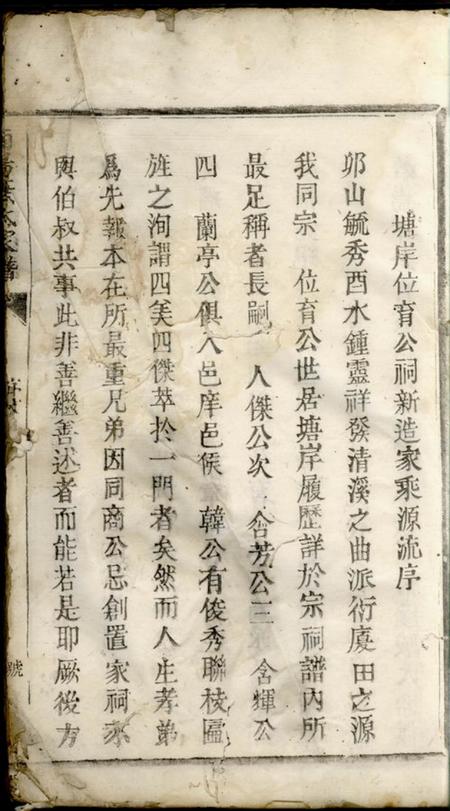 塘岸位育公祠新造家乘源流序
夘山毓秀酉水鍾靈祥發清溪之曲派衍慶田之源
我同宗 位育公世居塘岸履歷詳於宗祠譜內所
最足稱者長嗣 人傑公次 含芳公三 含輝公
四 蘭亭公俱入邑庠邑侯 韓公有俊秀聯枝匾
旌之洵謂四美四傑萃於一門者矣然而人生孝弟
為先報本在所最重兄弟因同商公忌創置家祠亦
與伯叔共事此非善繼善述者而能若是耶厥後方
氏家譜
序
號